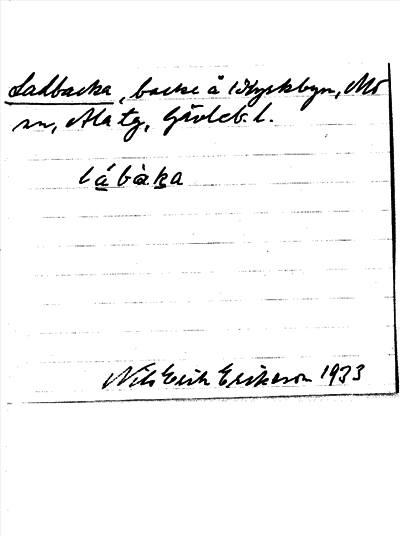 Ladbacka, backe å Kyrkbyn, Mo
sn, Ala tg, Gävleb. l.
lábàka
Nils Erik Erikson 1933